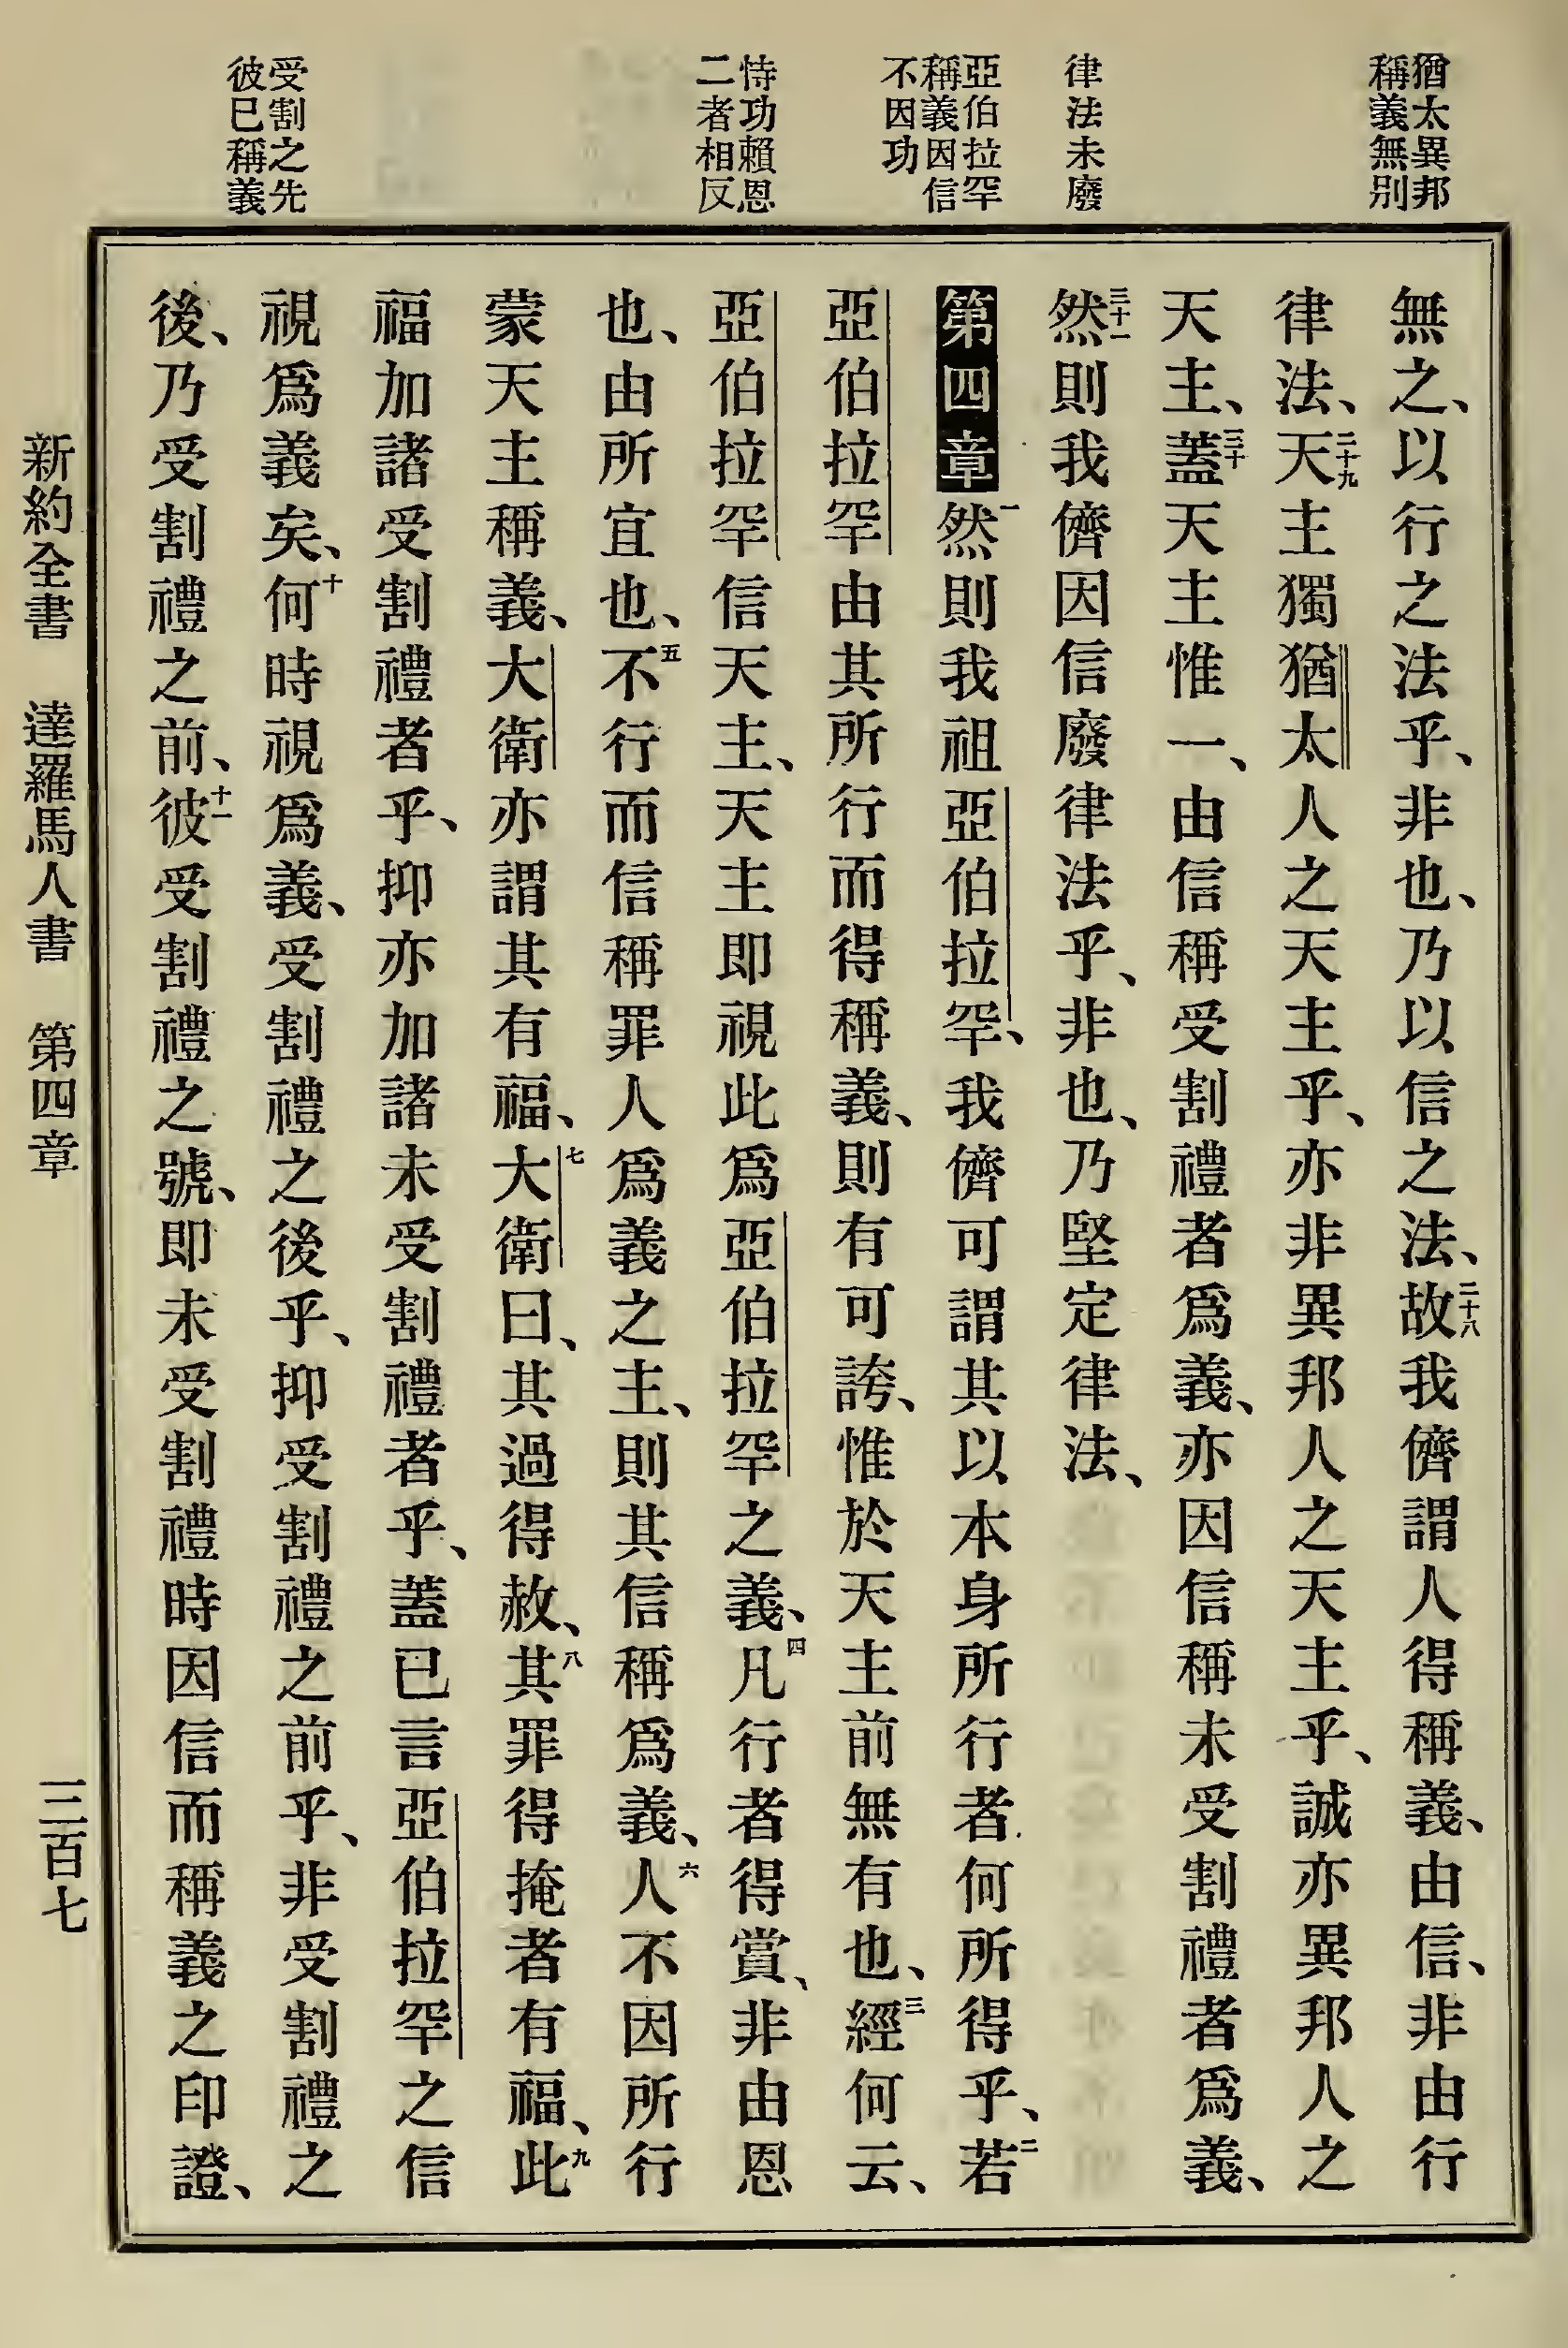 猶太異邦
稱義無別
律法未廢
亞伯拉罕
稱義因信
不因功
恃功賴恩
二者相反
受割之先
彼已稱義
無之、以行之法乎、非也、乃以信之法、二十八故我儕謂人得稱義、由信、非由行
律法、二十九天主獨猶太人之天主乎、亦非異邦人之天主乎、誠亦異邦人之
天主、三十蓋天主惟一、由信稱受割禮者爲義、亦因信稱未受割禮者爲義、
三十一然則我儕因信廢律法乎、非也、乃堅定律法、
第四章一然則我祖亞伯拉罕、我儕可謂其以本身所行者何所得乎、二若
亞伯拉罕由其所行而得稱義、則有可誇、惟於天主前無有也、三經何云、
亞伯拉罕信天主、天主即視此爲亞伯拉罕之義、四凡行者得賞、非由恩
也、由所宜也、五不行而信稱罪人爲義之主、則其信稱爲義、六人不因所行
蒙天主稱義、大衛亦謂其有福、七大衛曰、其過得赦、八其罪得掩者有福、九此
福加諸受割禮者乎、抑亦加諸未受割禮者乎、蓋已言亞伯拉罕之信
視爲義矣、十何時視爲義、受割禮之後乎、抑受割禮之前乎、非受割禮之
後、乃受割禮之前、十一彼受割禮之號、即未受割禮時因信而稱義之印證、
新約全書 達羅馬人書 第四章 三百七